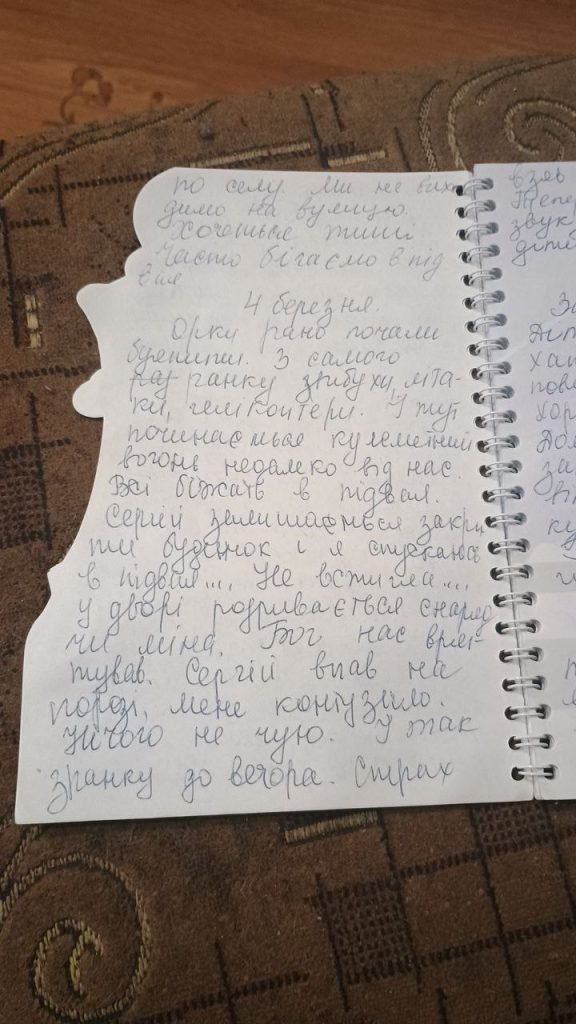 по селу. Ми не вихо
димо на вулицю.
Хочеться тиші
Часто бігаємо в під
вал
4 березня.
Орки рано почали
бомбити. З самого
ранку вибухи, літа-
ки, гелікоптери. І тут
починається кулеметний
вогонь недалеко від нас.
Всі біжать в підвал.
Сергій залишається закри
ти будинок і я спускаюсь
в підвал.... Не встигла....
у дворі розривається снаряд
чи міна. Бог нас вря-
тував. Сергій впав на
порозі, мене контузило.
Нічого не чую. І так
зранку до вечора. Страх
взяв
Тепер
звук
діти